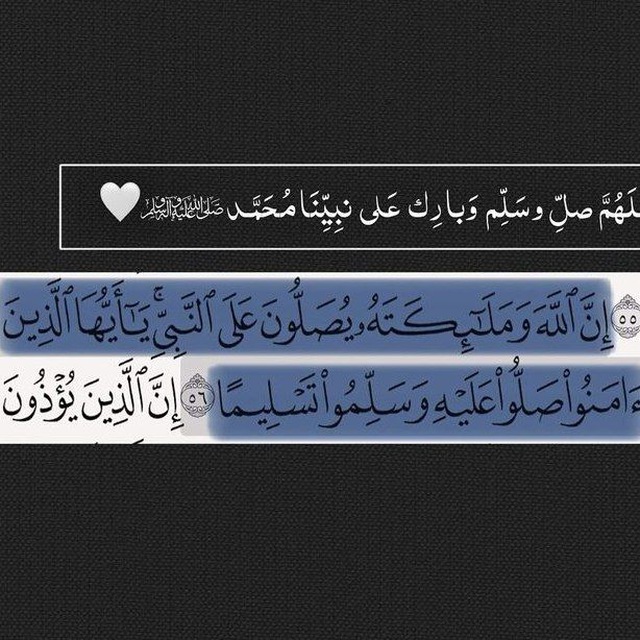 لَهُمَّ صلِّ وسَلِّم وَبارِك عَلى نبِيِّنَا مُحَمَّد ﷺ🤍
٥٥ إِنَّ ٱللَّهَ وَمَلَٰٓئِكَتَهُۥ يُصَلُّونَ عَلَى ٱلنَّبِيِّۚ يَٰٓأَيُّهَا ٱلَّذِينَ
ءَامَنُوا۟ صَلُّوا۟ عَلَيْهِ وَسَلِّمُوا۟ تَسْلِيمًا ٥٦ إِنَّ ٱلَّذِينَ يُؤْذُونَ